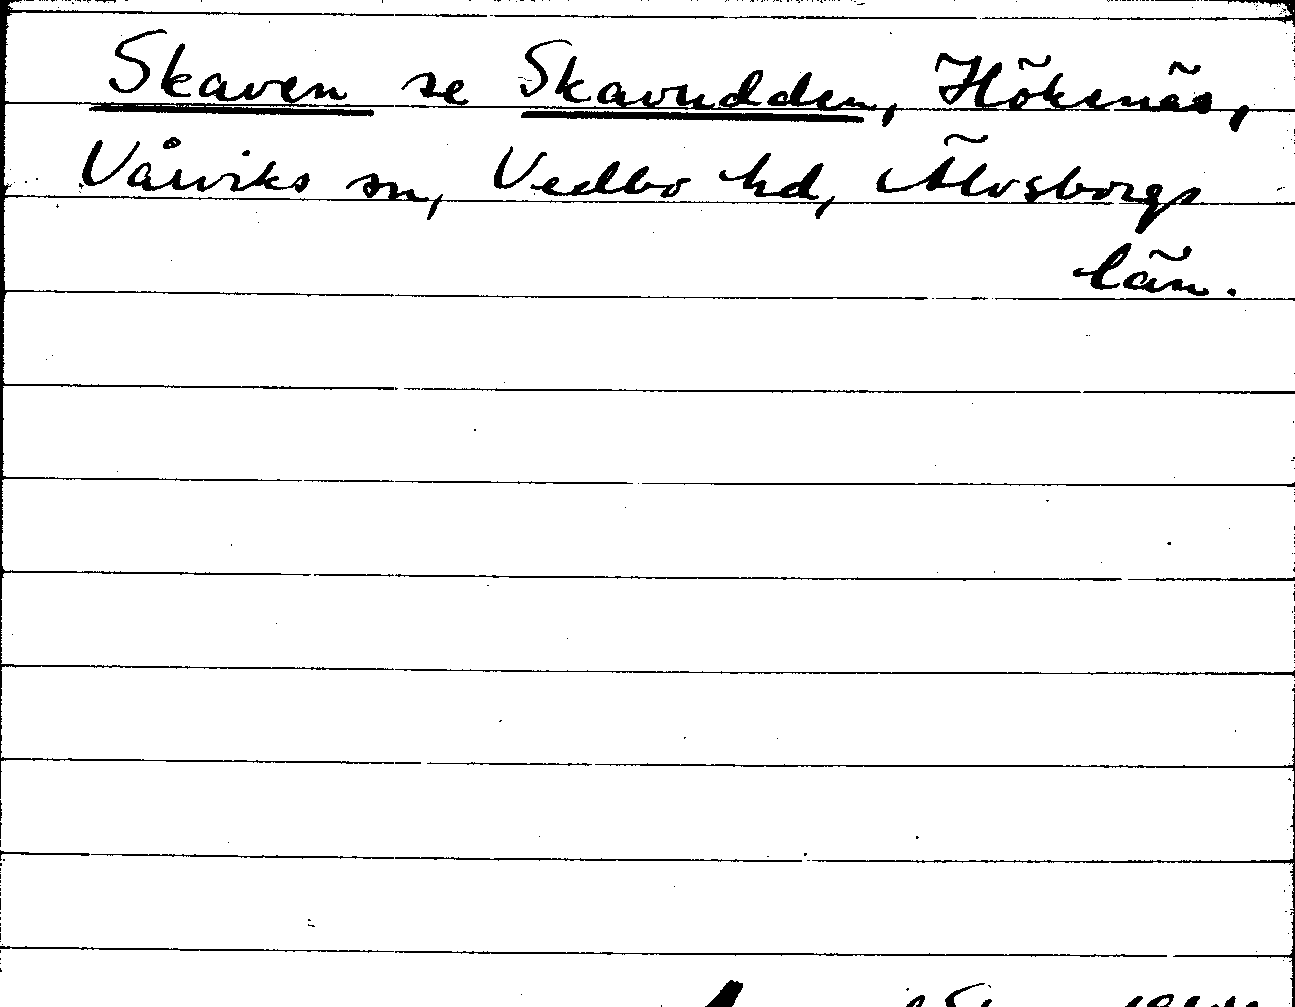 Skaven se Skavudden, Hökenäs,
Vårviks sn, Vedbo hd, Älvsborgs
län.